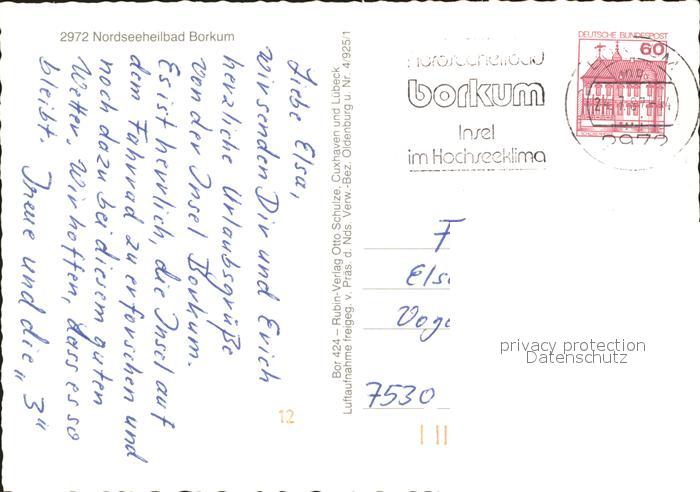 2972 Nordseeheilbad Borkum
Liebe Elsa,
wir senden Dir und Erich
herzliche Urlaubsgrüße
von der Insel Borkum.
Es ist herrlich, die Insel auf
dem Fahrrad zu erforschen und
noch dazu bei diesem guten
Wetter. Wir hoffen, dass es so
bleibt. Irene und die „3“
Bor 424 – Rubin-Verlag Otto Schulze, Cuxhaven und Lübeck
Luftaufnahme freigeg. v. Präs. d. Nds. Verw.-Bez. Oldenburg u. Nr. 4/925/1
Nordseeheilbad
borkum
Insel
im Hochseeklima
DEUTSCHE BUNDESPOST
60
2972
F
Els
Voge
7530
privacy protection
Datenschutz
12